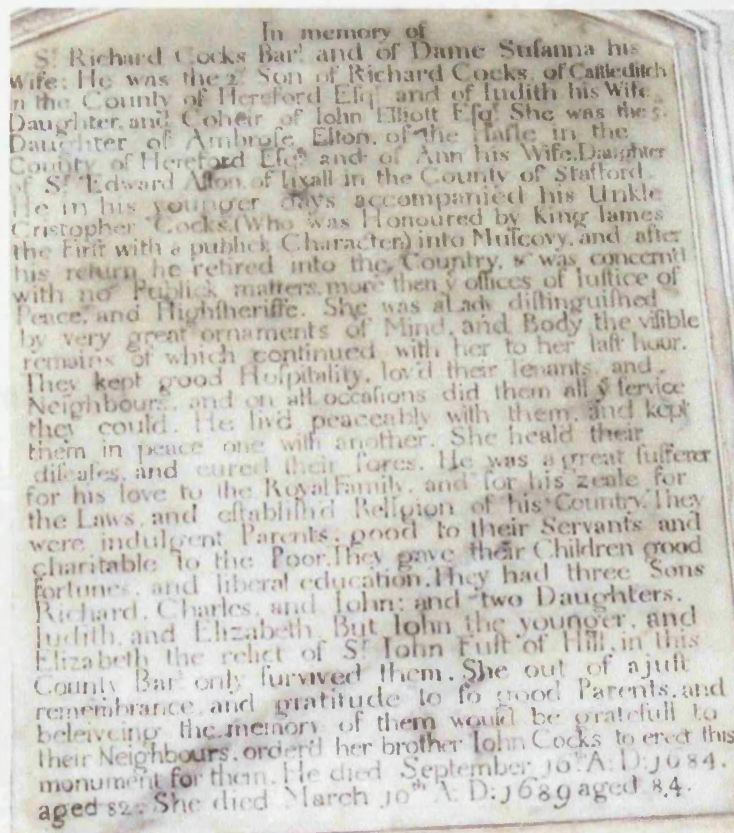 In memory of
Sr. Richard Cocks Bart. and of Dame Suſanna his
Wife: He was the 2d. Son of Richard Cocks, of Caſtleditch
in the County of Hereford Eſqr. and of Iudith his Wife
Daughter, and Coheir of Iohn Elliott Eſqr. She was the 5.
Daughter of Ambroſe, Elton, of the Haſle in the
County of Hereford Eſqr. and of Ann his Wife, Daughter
of Sr. Edward Aſton, of Tixall in the County of Stafford.
He in his younger days accompanied his Unkle
Cristopher Cocks, (Who was Honoured by King Iames
the Firſt with a publick Character) into Muſcovy, and after
his return he retired into the Country, & was concernd
with no Publick matters, more then ye offices of Iuſtice of
Peace, and Highſheriffe. She was a Lady diſtinguiſhed
by very great ornaments of Mind, and Body the viſible
remains of which continued with her to her laſt hour.
They kept good Hoſpitality, lov'd their Tenants, and
Neighbours, and on all occaſions did them all ye ſervice
they could. He liv'd peaceably with them, and kept
them in peace one with another. She heald their
diſeaſes, and cured their ſores. He was a great ſufferer
for his love to the Royal Family, and for his zeale for
the Laws, and eſtabliſh'd Religion of his Country. They
were indulgent Parents, good to their Servants and
charitable to the Poor. They gave their Children good
fortunes, and liberal education. They had three Sons
Richard, Charles, and Iohn; and two Daughters,
Iudith, and Elizabeth. But Iohn the younger, and
Elizabeth the relict of Sr. Iohn Fuſt of Hill, in this
County Bart. only ſurvived them. She out of a juſt
remembrance, and gratitude to ſo good Parents, and
beleiveing the memory of them would be gratefull to
their Neighbours, order'd her brother Iohn Cocks to erect this
monument for them. He died September 16th. A: D: 1684.
aged 82. She died March 10th A: D: 1689 aged 84.